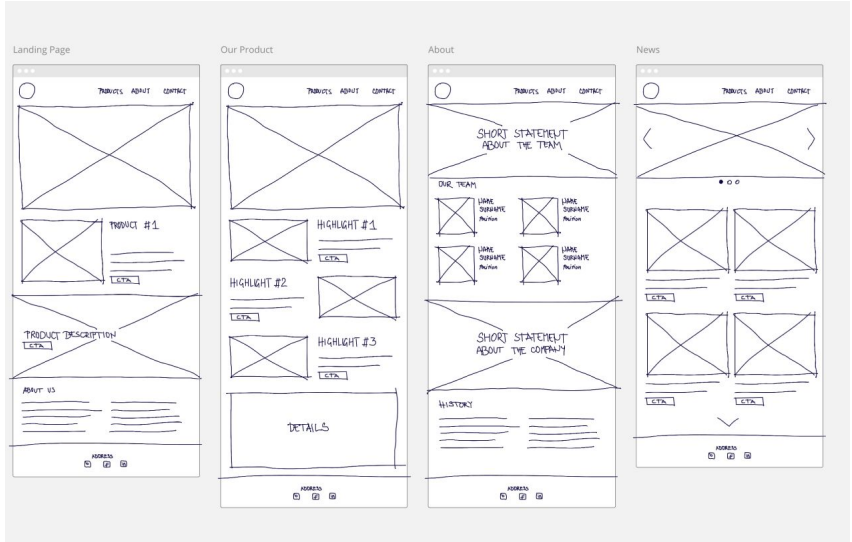 Landing Page
PRODUCTS ABOUT CONTACT
PRODUCT #1
CTA
PRODUCT DESCRIPTION
CTA
ABOUT US
ADDRESS
Our Product
PRODUCTS ABOUT CONTACT
HIGHLIGHT #1
CTA
HIGHLIGHT #2
CTA
HIGHLIGHT #3
CTA
DETAILS
ADDRESS
About
PRODUCTS ABOUT CONTACT
SHORT STATEMENT
ABOUT THE TEAM
OUR TEAM
NAME
SURNAME
Position
NAME
SURNAME
Position
NAME
SURNAME
Position
NAME
SURNAME
Position
SHORT STATEMENT
ABOUT THE COMPANY
HISTORY
ADDRESS
News
PRODUCTS ABOUT CONTACT
CTA
CTA
CTA
CTA
ADDRESS